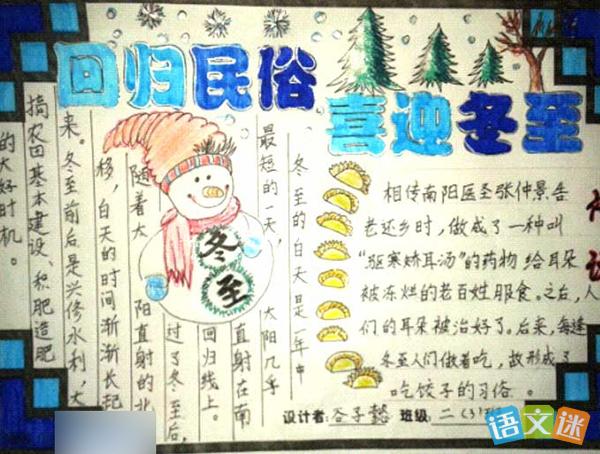 回归民俗
喜迎冬至
冬至的白天是一年中
最短的一天，太阳几乎
直射在南
回归线上。
过了冬至后，
随着太阳直射的北
移，白天的时间渐渐长起
来。冬至前后是兴修水利，大
搞农田基本建设、积肥造肥
的大好时机。
冬至
相传南阳医圣张仲景告
老还乡时，做成了一种叫
“驱寒矫耳汤”的药物给耳朵
被冻烂的老百姓服食。之后，人
们的耳朵被治好了。后来，每逢
冬至人们做着吃，故形成了
吃饺子的习俗。
设计者：谷子懿 班级：二（3）
语文迷